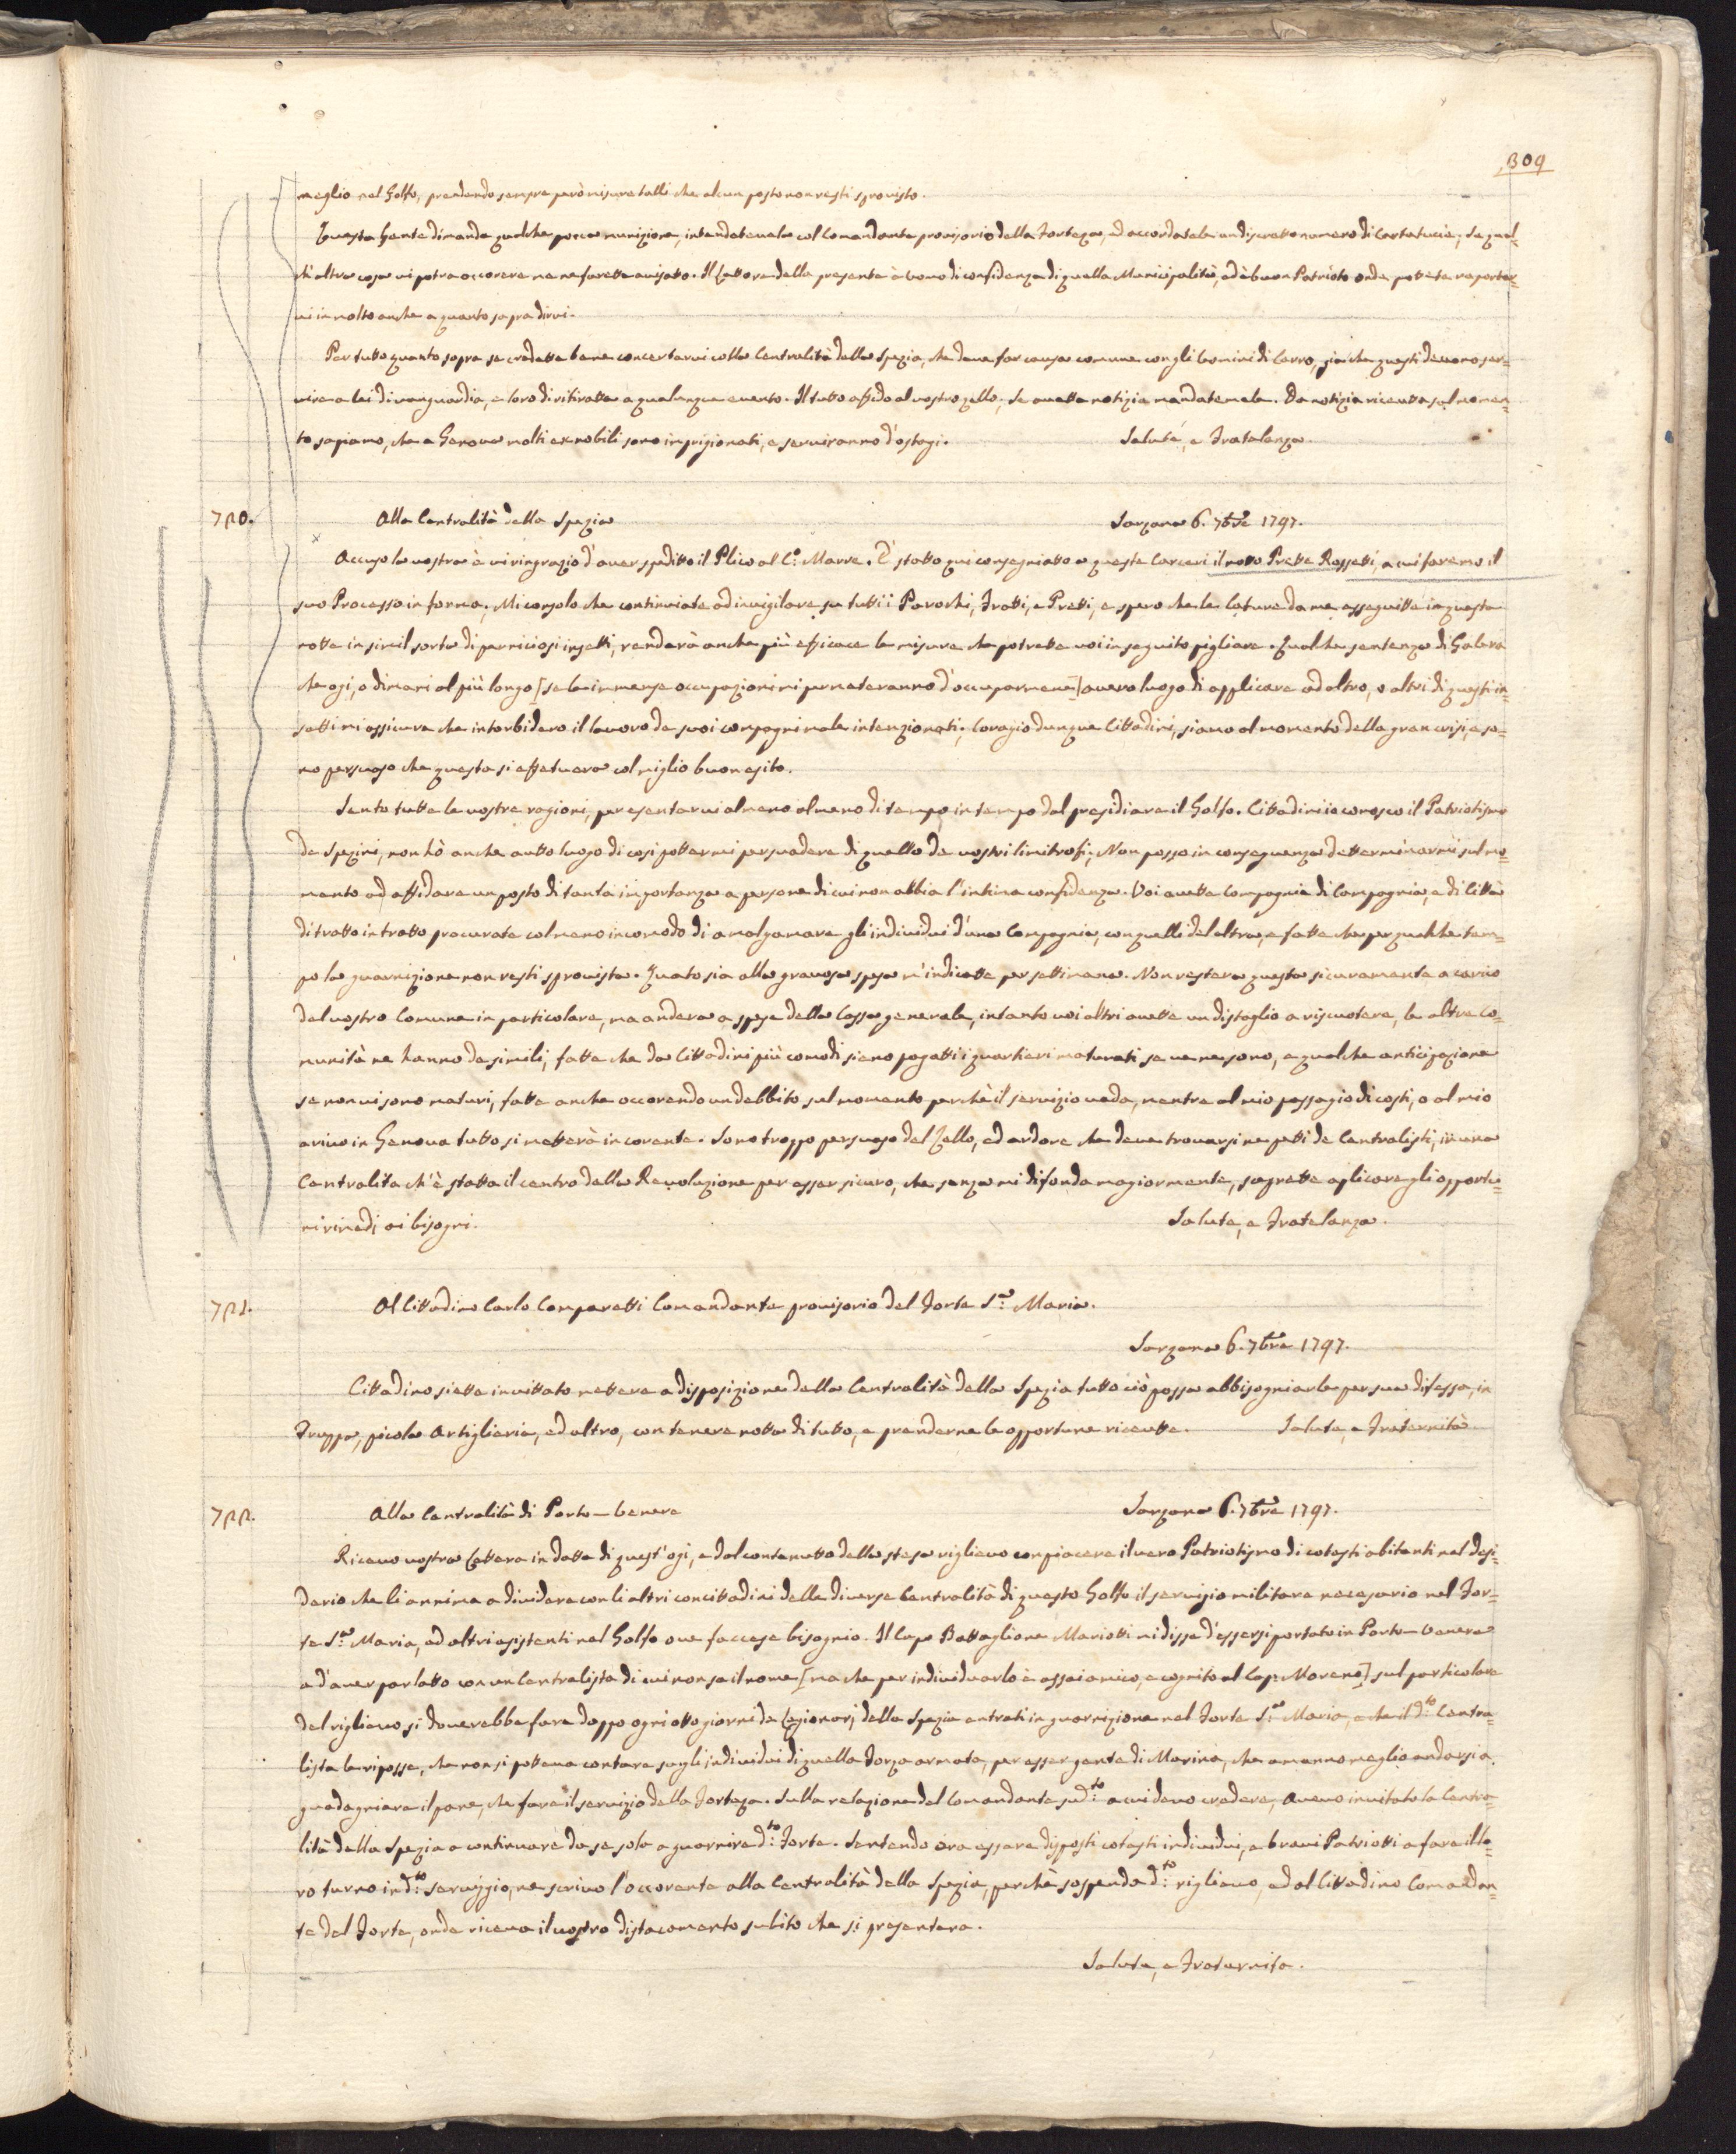 309
meglio nel Golfo, prendendo sempre però misure talli che alcun posto non resti sprovisto.
Questa Gente dimanda qualche pocca munizione, intendetevela col Comandante provisorio della Forteza, ed accordatele un discretto numero di Cartatuccie; se qual=
ch'altra cosa vi potra occorere me ne farette avisato. Il Lattore della presente è Uomo di confidenza di quella Municipalità, ed è buon Patrioto onde pottete raportar=
vi in molto anche a quanto sapra dirvi.
Per tutto quanto sopra se credette bene concertarvi colla Centralità della Spezia, che deve far causa comune con gli Uomini di Carro, gia che questi devono ser=
vire a lei di vanguardia, e loro di ritiratta a qualunque evento. Il tutto affido al vostro zello; Se avette notizie mandatemele. Da notizia ricevuta sul momen=
to sapiamo, che a Genova molti ex nobili sono imprigionati, e serviranno d'ostagi. Salute, e Fratelanza.
720. Alla Centralità della Spezia Sarzana 6. 7bre 1797.
Accuso la vostra è vi ringrazio d'aver spedito il Plico al C.o Marre. E' stato qui consegniatto a queste Carceri il notto Prette Rossetti, a cui faremo il
suo Processo in forma; Mi consolo che continuiate ad invigilare su tutti i Parochi, Fratti, e Pretti, e spero che le cature da me esseguitte in questa
notte in simil sorta di perniciosi insetti, renderà anche più efficace le misure che potrette voi in seguito pigliare. Qualche sentenza di Galera
che ogi, o dimani al più longo [se le immense occupazioni mi permeteranno d'occuparmene] avero luogo di applicare ad altro, o altri di questi in=
setti mi assicura che intorbidero il lavoro de suoi compagni male intenzionati; Coragio dunque Cittadini, siamo al momento della gran crisi, e so=
no persuaso che questa si effetuera col miglio buon esito.
Sento tutte le vostre ragioni, per esentarvi almeno almeno di tempo in tempo dal presidiare il Golfo. Cittadini io conosco il Patriotismo
de Spezini, non hò anche autto luogo di cosi potermi persuadere di quello de vostri limitrofi; Non posso in conseguenza detterminarmi sul mo=
mento ad affidare un posto di tanta importanza a persone di cui non abbia l'intima confidenza. Voi avette Compagnie di Campagnia, e di Città
di tratto in tratto procurate col meno incomodo di amalgamare gl'individui d'una Compagnia, con quelli del altra, e fatte che per qualche tem=
po la guarnizione non resti sprovista. Quato sia alla gravosa spesa m'indicatte per settimana. Non restera questa sicuramente a carico
del vostro Comune in particolare, ma andera a spese della Cassa generale, intanto voi altri avette un distaglio a riscuotere, le altre co=
munità ne hanno de simili, fatte che da Cittadini più comodi sieno pagatti i quartieri maturati se ve ne sono, e qualche anticipazione
se non vi sono maturi, fatte anche occorendo un debbito sul momento perchè il servizio vada, mentre al mio passagio di costi, o al mio
arivo in Genova tutto si metterà in corente. Sono troppo persuaso del Zello, ed ardore che deve trovarsi ne petti de Centralisti, in una
Centralita ch'è statta il centro della Revoluzione per esser sicuro, che senza mi difonda magiormente, saprette aplicare gli opportu=
ni rimedj ai bisogni. Salute, e Fratelanza.
721. Al Cittadino Carlo Comparetti Comandante provisorio del Forte S.a Maria.
Sarzana 6. 7bre 1797.
Cittadino siette invittato mettere a disposizione della Centralità della Spezia tutto ciò possa abbisogniarle per sua difessa, in
Truppa, picola Artiglieria, ed altro, con tenere notta di tutto, e prenderne le opportune ricevutte. Salute, e Fraternità.
722. Alla Centralità di Porto=Venere Sarzana 6. 7bre 1797.
Ricevo vostra Lettera in datta di quest'ogi, e dal contenutto della stesa riglievo con piacere il vero Patriotismo di cotesti abitanti nel desi=
derio che li annima a dividere con li altri concittadini delle diverse Centralità di questo Golfo il servizio militare necesario nel For=
te S.a Maria, ed altri esistenti nel Golfo ove faccese bisognio. Il Capo Battaglione Mariotti mi disse d'essersi portato in Porto=Venere
e d'aver parlatto con un Centralista di cui non sa il nome [ma che per individuarlo è assai amico, e cognito al Cap. Moreno] sul particolare
del riglievo si doverebbe fare doppo ogni otto giorni de Legionarj della Spezia entrati in guarnizione nel Forte S.a Maria, e che il d.to Centra=
lista le riposse, che non si potteva contare su gli individui di quella Forza armata, per esser gente di Marina, che amanno meglio andarsi a
guadagniare il pane, che fare il servizio della Forteza. Sulla relazione del Comandante sud.to a cui devo credere, Avevo invitato la Centra=
lità della Spezia a continuare da se sola a guarnire d.to Forte. Sentendo ora essere disposti cotesti individui, e bravi Patriotti a fare il lo=
ro turno in d.to serviggio, ne scrivo l'occorente alla Centralità della Spezia, perchè sospenda d.to riglievo, ed al Cittadino Comandan=
te del Forte, onde riceva il vostro distacamento subito che si presentera.
Salute, e Fraternita.